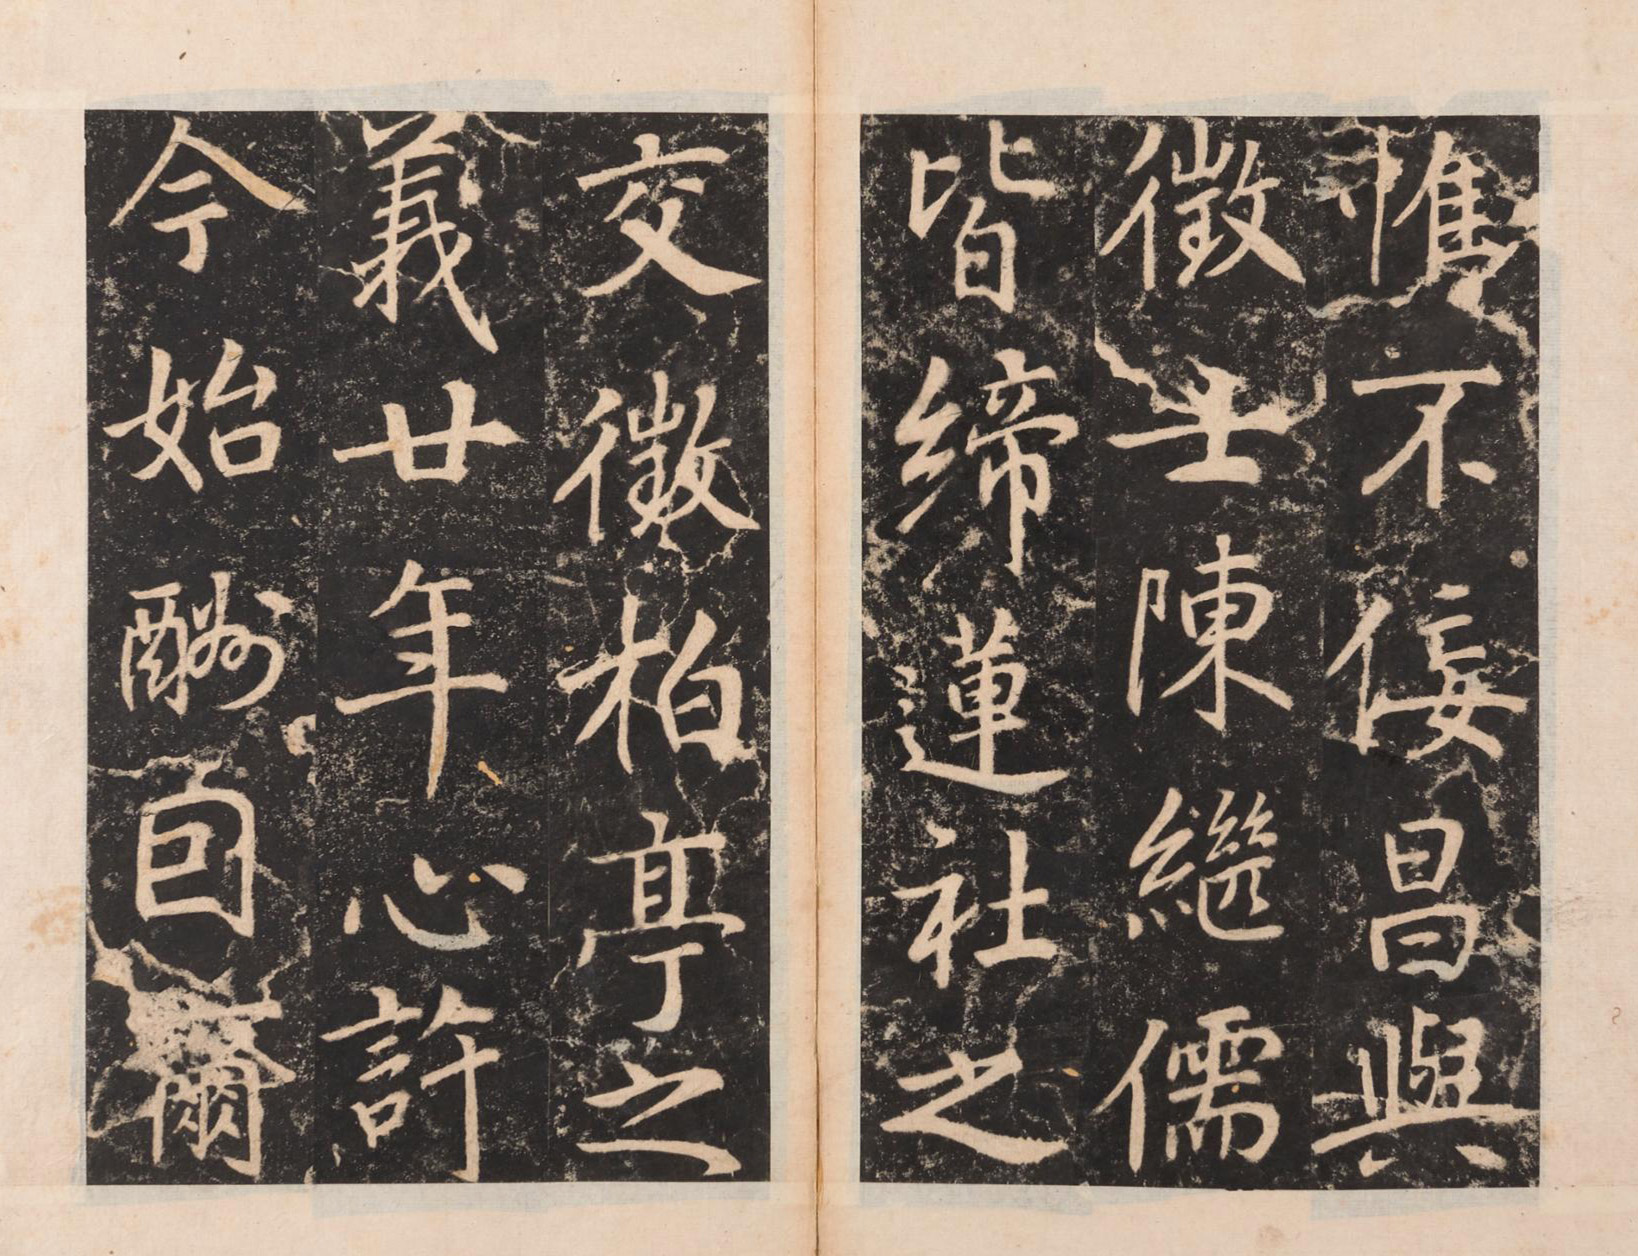 惟不佞昌與
徵士陳繼儒
皆締蓮社之
交徵柏亭之
義廿年心許
今始酬自爾